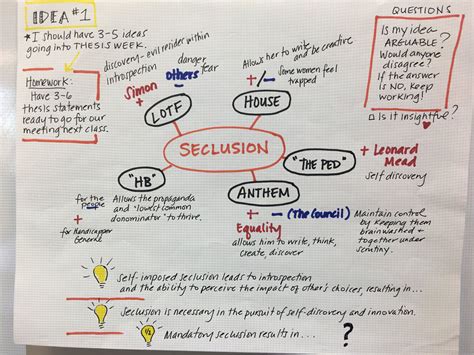 IDEA #1
* I should have 3-5 ideas
going into THESIS WEEK.
Homework:
Have 3-6
thesis statements
ready to go for our
meeting next class.
discovery - evil resides within
introspection
Simon
+
danger
others fear
-
LOTF
Allows her to write and be creative
+/-
Some women feel
trapped
HOUSE
SECLUSION
QUESTIONS
Is my idea
ARGUABLE?
Would anyone
disagree? If
the answer
is NO, keep
working!
Is it insightful?
"THE PED"
+ Leonard
Mead
self discovery
"HB"
for the
people
-
+
for Handicapper
General
Allows the propaganda
and "lowest common
denominator" to thrive.
ANTHEM
+
Equality
allows him to write, think,
create, discover
- (The Council)
Maintain control
by keeping them
brainwashed +
together under
scrutiny.
Self-imposed seclusion leads to introspection
and the ability to perceive the impact of other's choices, resulting in...
Seclusion is necessary in the pursuit of self-discovery and innovation.
1/2
Mandatory seclusion results in... ?